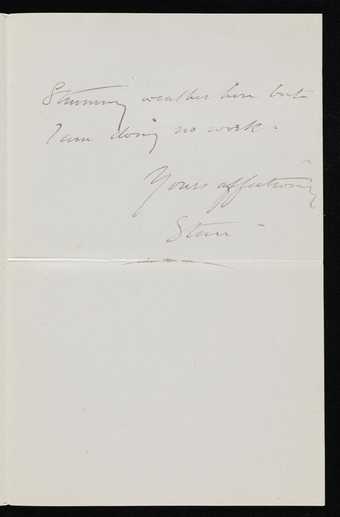 Stunning weather here but
I am doing no work.
Yours affectionately